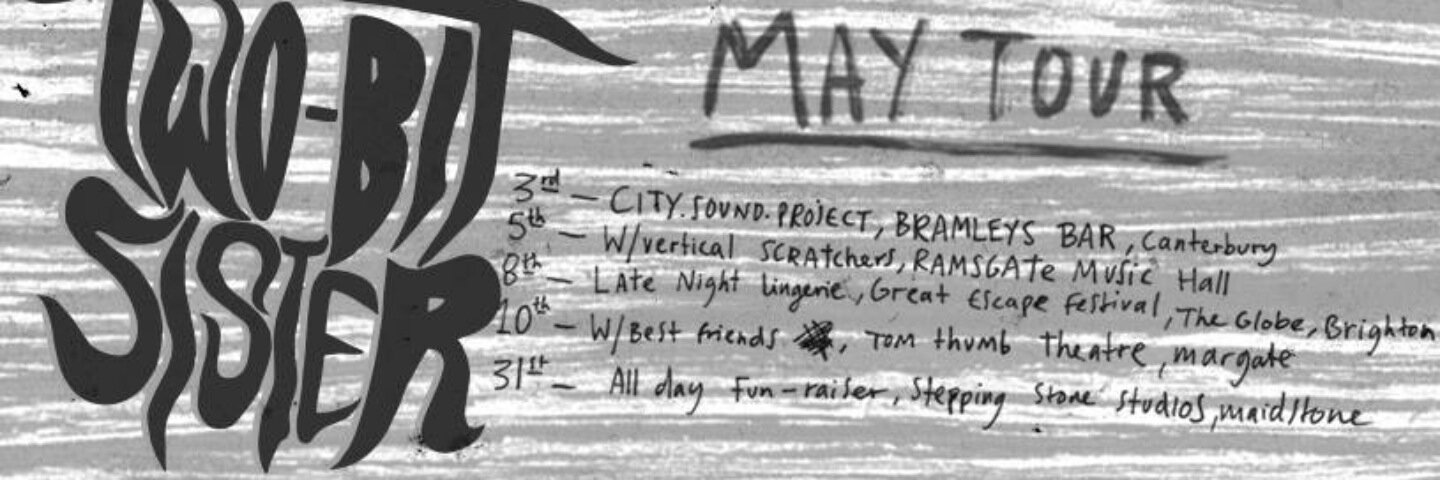 TWO-BIT
SISTER
MAY TOUR
3rd – CITY.SOUND.PROJECT, BRAMLEYS BAR, Canterbury
5th – W/vertical SCRAtchers, RAMSGATe Music Hall
8th – LAte Night Lingerie, Great Escape Festival, The Globe, Brighton
10th – W/Best friends, Tom thumb theatre, margate
31st – All day fun-raiser, Stepping Stone Studios, maidstone